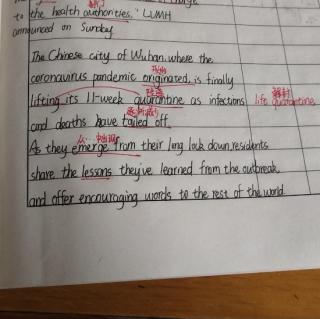 to the health authorities," LVMH
announced on Sunday
The Chinese city of Wuhan. where the
coronavirus pandemic originated, is finally
lifting its 11-week quarantine as infections life quarantine
解封
and deaths have tailed off.
As they emerge from their long lock down, residents
share the lessons they've learned from the outbreak.
and offer encouraging words to the rest of the world.